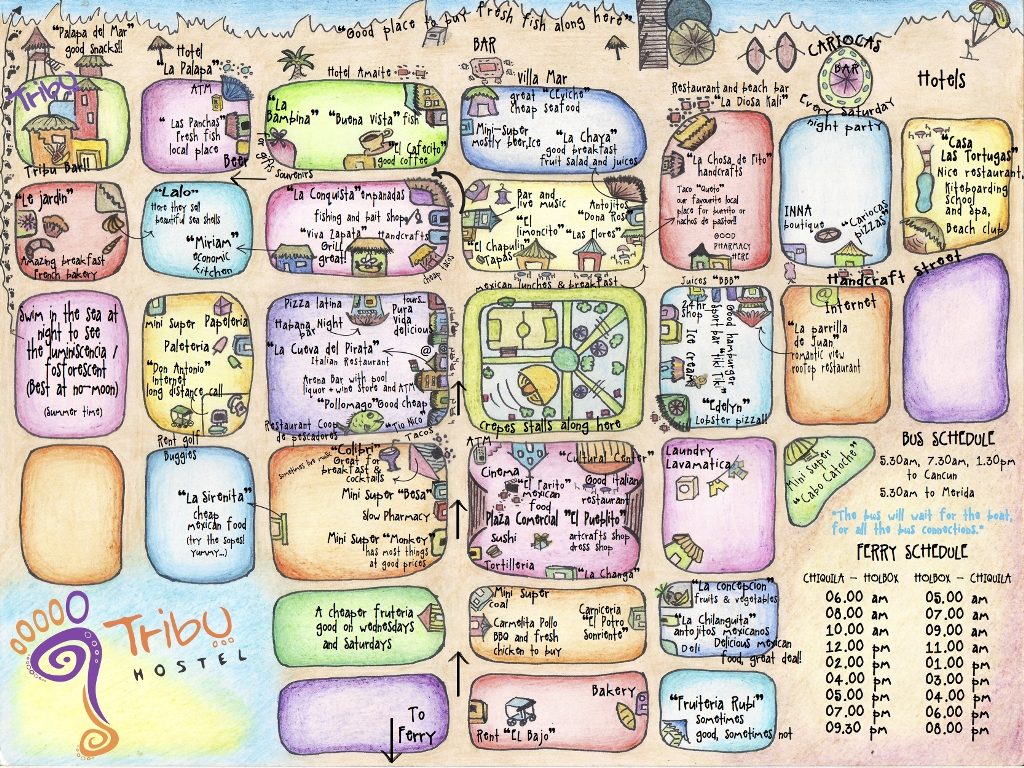 "Good place to buy fresh fish along here"
"Palapa del Mar"
good snacks!!
Hotel
"La Palapa"
Hotel Amaite
BAR
Villa Mar
CARIOCAS
BAR
Every Saturday
night party
Restaurant and beach bar
"La Diosa Kali"
Hotels
Tribu
Tribu Bar!!
ATM
"Las Panchas"
Fresh fish
local place
Beer
"La
Bambina"
"Buena Vista" fish
"El Cafecito"
good coffee
gifts souvenirs
great "Ceviche"
cheap seafood
Mini-super
mostly beer, Ice
"La Chaya"
good breakfast
fruit salad and juices
"La Chosa de Tito"
handcrafts
Taco "Queto"
our favourite local
place for burrito or
nachos de pastor!!
GOOD
PHARMACY
HERE
INNA
boutique
"Cariocas
pizzas"
"Casa
Las Tortugas"
Nice restaurant,
Kiteboarding
school
and spa,
Beach club
"Le jardin"
Amazing breakfast
French bakery
"Lalo"
Here they sell
beautiful sea shells
"Miriam"
economic
kitchen
"La Conquista" empanadas
fishing and bait shop
"Viva Zapata"
Grill
great!
Handcrafts
cheap tacos
Bar and
live music
"El
limoncito"
Antojitos
"Dona Rosi
"El Chapulin"
@Tapas
"Las Flores"
mexican lunches & breakfast
Juices "BBB"
Handcraft Street
Swim in the sea at
night to see
the luminiscencia /
fostorescent
(Best at no-moon)
(Summer time)
mini super
Papeleria
Paleteria
"Don Antonio"
Internet
long distance call
Rent golf
Buggies
Pizza latina
Habana Night
bar
tours..
Pura
Vida
delicious
"La Cueva del Pirata"
Italian Restaurant
@
Arena Bar with pool
liquor + wine store and ATM
"Pollomago" Good cheap
Restaurant Coop
de pescadores
"Tio Nico"
Tacos
crepes stalls along here
24hr
shop
Ice cream
Good hamburger
sport bar "Tiki Tiki"
"Edelyn"
Lobster pizza!!
@
Internet
"La parrilla
de Juan"
romantic view
rooftop restaurant
"La Sirenita"
cheap
mexican food
(try the sopes!
yummy...)
"Colibri"
Great for
breakfast &
cocktails
sometimes live music
Mini Super "Besa"
Slow Pharmacy
Mini Super "Monkey"
has most things
at good prices
ATM
Cinema
"Cultural Center"
"El Parito"
mexican
food
Good italian
restaurant
Plaza Comercial "El Pueblito"
sushi
artcrafts shop
dress shop
Tortilleria
"La Changa"
Laundry
Lavamatica
Mini Super
"Cabo Catoche"
BUS SCHEDULE
5.30am, 7.30am, 1.30pm
to Cancun
5.30am to Merida
"The bus will wait for the boat,
for all the bus connections."
FERRY SCHEDULE
CHIQUILA - HOLBOX HOLBOX - CHIQUILA
06.00 am 05.00 am
08.00 am 07.00 am
10.00 am 09.00 am
12.00 pm 11.00 am
02.00 pm 01.00 pm
04.00 pm 03.00 pm
05.00 pm 04.00 pm
07.00 pm 06.00 pm
09.30 pm 08.00 pm
Tribu
HOSTEL
A cheaper fruteria
good on wednesdays
and Saturdays
Mini super
coal
Carmelita Pollo
BBQ and fresh
chicken to buy
Carniceria
"El Potro
Sonriente"
"La concepcion"
fruits & vegetables
"La Chilanguita"
antojitos mexicanos
Deli
Delicious mexican
food, great deal!
To
Ferry
Bakery
Rent "EL Bajo"
"Fruiteria Rubi"
sometimes
good, sometimes not